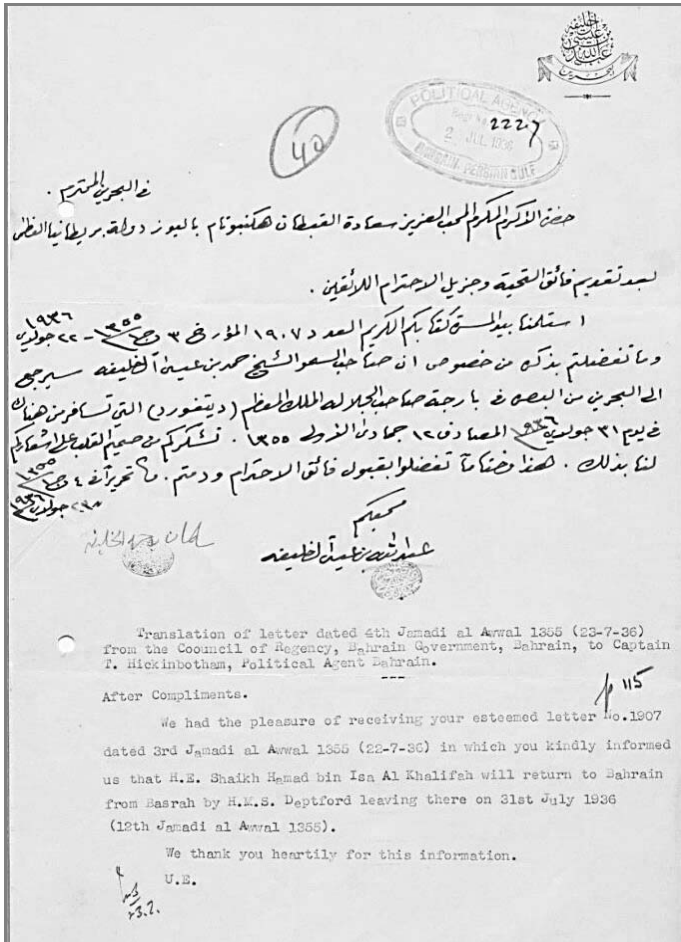 عبدالله بن عيسى الخليفه
البحرين
POLITICAL AGENCY
Regr. No. 2227
2 JUL 1936
BAHRAIN, PERSIAN GULF
40
في البحرين المحترم .
حضرة الأكرم المكرم المحب العزيز سعادة القبطان هكنبوتام باليوز دولة بريطانيا العظمى
بعد تقديم فائق التحية وجزيل الاحترام اللائقين .
استلمنا بيد المسرة كتابكم الكريم العدد ١٩٠٧ المؤرخ ٣ ج١ ١٣٥٥ - ٢٢ جولاي ١٩٣٦
وما تفضلتم بذكره من خصوص ان صاحب السمو الشيخ حمد بن عيسى الخليفه سيرجع
الى البحرين من البصره في بارجة صاحب الجلاله الملك المعظم (ديتفورد) التي تسافر من هناك
في يوم ٣١ جولاي ١٩٣٦ المصادف ١٢ جمادى الاولى ١٣٥٥ . نشكركم من صميم القلب على اشعاركم
لنا بذلك . هذا وختاما تفضلوا بقبول فائق الاحترام ودمتم . تحريرا في ٤ ج١ ١٣٥٥
٢٣ جولاي ١٩٣٦
محبكم
سلمان بن حمد الخليفه
عبدالله بن عيسى الخليفه
Translation of letter dated 4th Jamadi al Awwal 1355 (23-7-36)
from the Coouncil of Regency, Bahrain Government, Bahrain, to Captain
T. Hickinbotham, Political Agent Bahrain.
---
p 115
After Compliments.
We had the pleasure of receiving your esteemed letter No.1907
dated 3rd Jamadi al Awwal 1355 (22-7-36) in which you kindly informed
us that H.E. Shaikh Hamad bin Isa Al Khalifah will return to Bahrain
from Basrah by H.M.S. Deptford leaving there on 31st July 1936
(12th Jamadi al Awwal 1355).
We thank you heartily for this information.
U.E.
23.7.